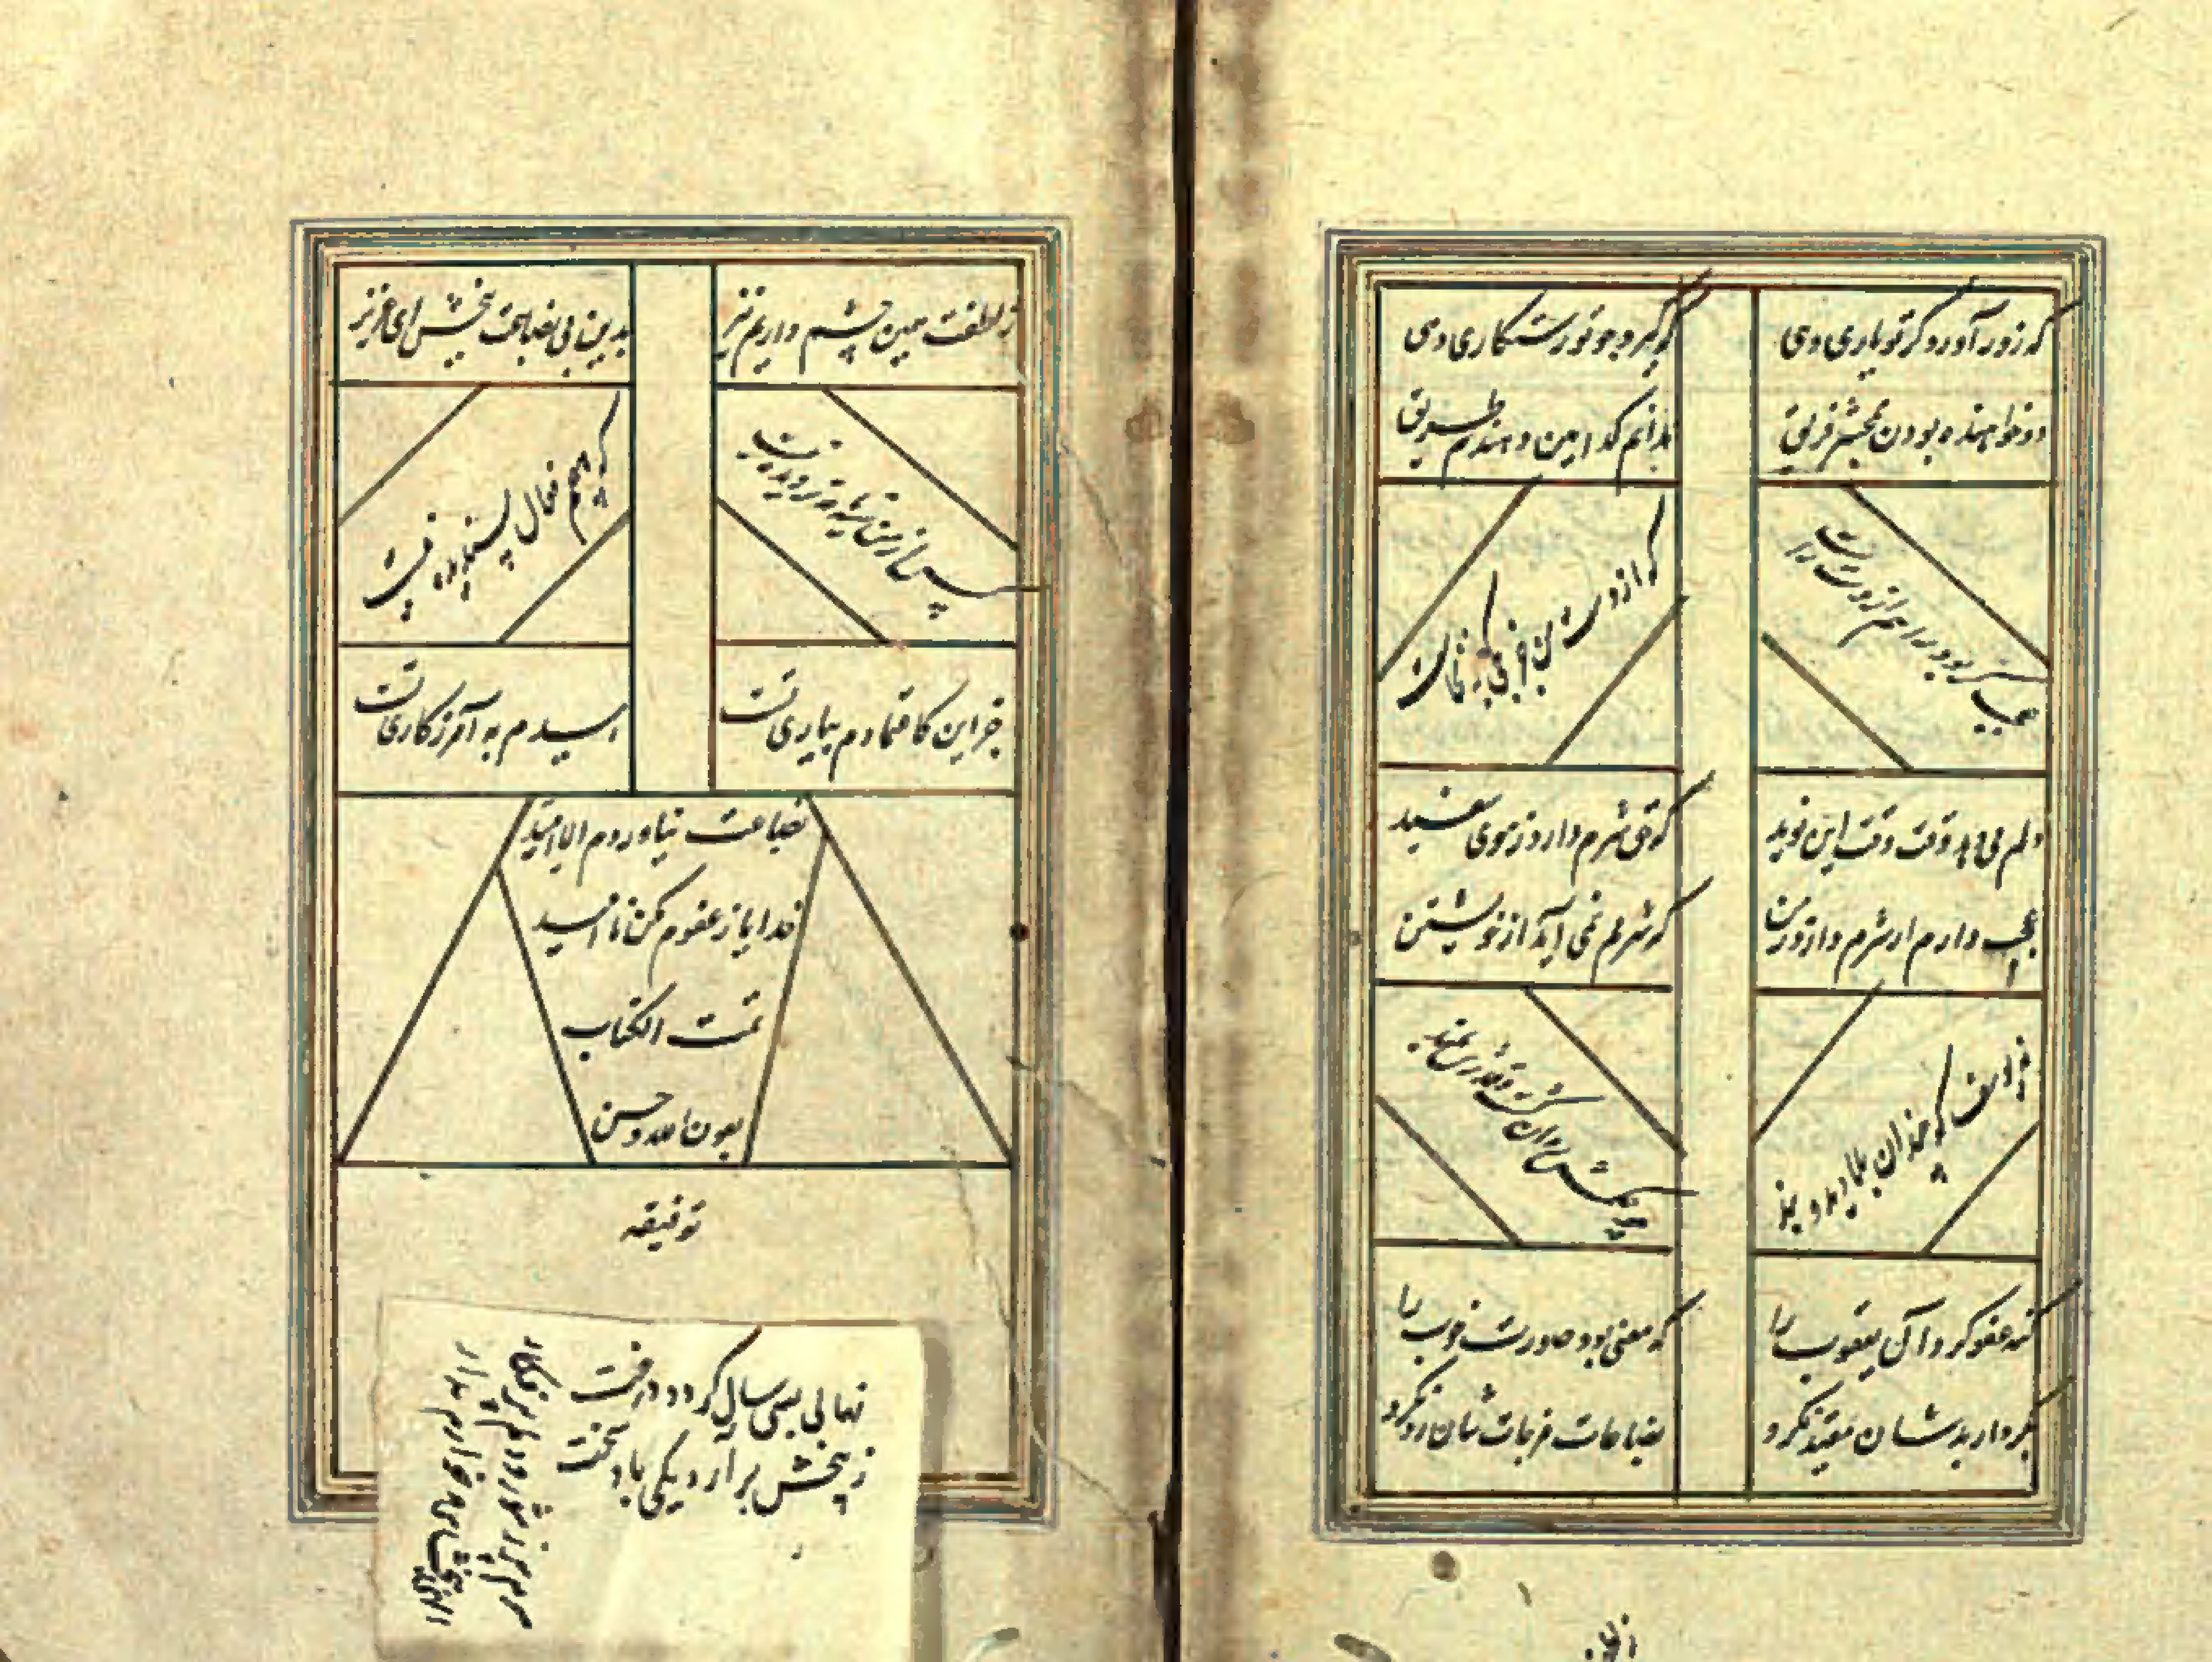 که زور آورد گر تو یاری دهی
که گیرد چو تو رستگاری دهی
دو خواهند بودن بمحشر فریق
ندانم کدامین دهندم طریق
عجب گر بود راهم از دست راست
که از دست من جز کجی بر نخاست
دلم می دهد وقت وقت این نوید
که حق شرم دارد ز موی سفید
عجب دارم ار شرم دارد ز من
که شرمم نمی آید از خویشتن
نه یوسف که چندان بلا دید و بند
چو حکمش روان گشت و قدرش بلند
گنه عفو کرد آل یعقوب را
که معنی بود صورت خوب را
بکردار بدشان مقید نکرد
بضاعات مزجات شان رد نکرد
ز لطفت همین چشم داریم نیز
بدین بی بضاعت ببخش ای عزیز
پس از من سیه نامه تر دیده نیست
که هیچم فعال پسندیده نیست
جز این کاعتمادم بیاری تست
امیدم به آمرزگاری تست
بضاعت نیاوردم الا امید
خدایا ز عفوم مکن ناامید
تمت الکتاب
بعون الله و حسن
توفیقه
نهالی بسی سال گردد درخت
ز بیخش برآرد یکی باد سخت